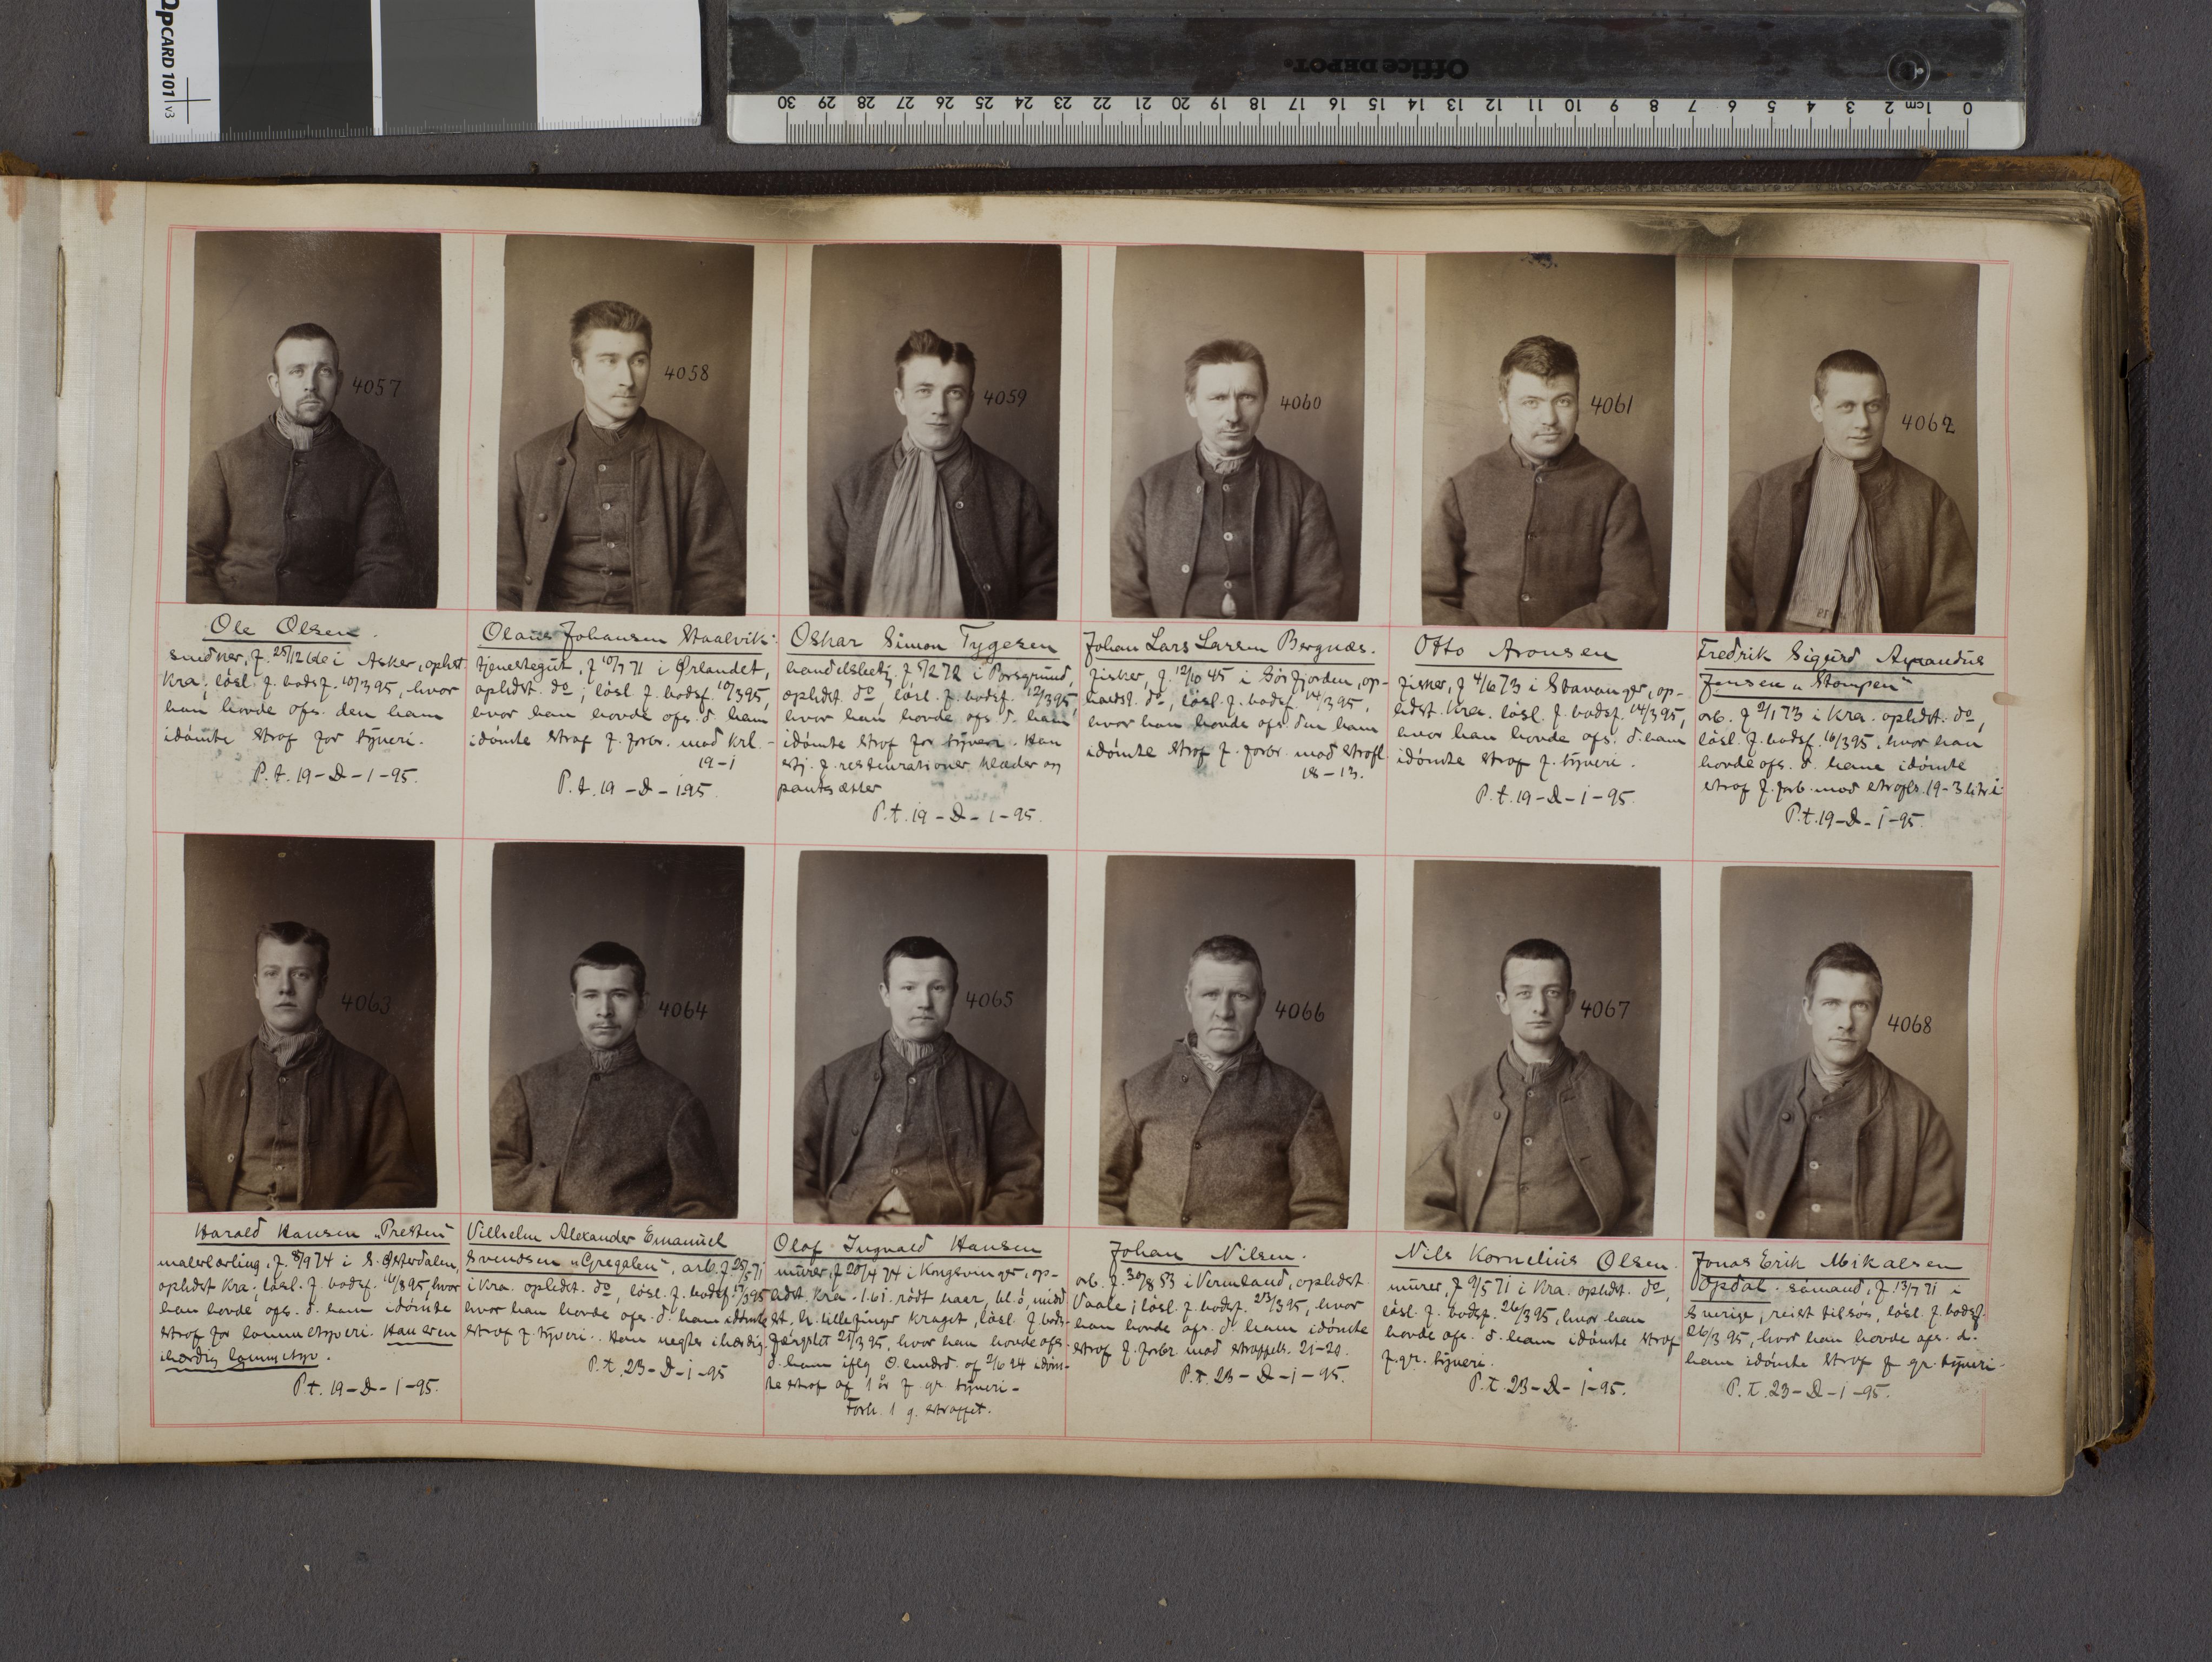 OpCARD 101 v3
Office DEPOT
0 1 cm 2 3 4 5 6 7 8 9 10 11 12 13 14 15 16 17 18 19 20 21 22 23 24 25 26 27 28 29 30
4057
4058
4059
4060
4061
4062
Ole Olsen.
snedker, f. 25/12 66 i Asker, oplst.
Kra; løsl. f. bodsf. 10/3 95, hvor
han havde ofs. den ham
idømte straf for tyveri.
P.t. 19-D-1-95.
Olaus Johansen Staalvik.
tjenestegut, f 10/7 71 i Ørlandet,
oplidst. do; løsl. f. bodsf. 10/3 95,
hvor han havde ofs. d. ham
idømte straf f. forbr. mod krl.
19-1
P.t. 19-D-1-95.
Oskar Simon Tygesen
handelsbetj. f 5/2 72 i Porsgrund,
oplidst do, løsl. f. bodsf. 12/3 95,
hvor han havde ofs. d. ham
idømte straf for tyveri. Han
stj. f. restaurationer klæder og
pantsætter
P.t. 19-D-1-95.
Johan Lars Larsen Bergnæs.
fisker, f. 12/10 45 i Sørfjorden, op-
hodst. do, løsl. f. bodsf. 14/3 95,
hvor han havde ofs. den ham
idømte straf f. forbr. mod strafl.
18-13.
Otto Aronsen
fisker, f 4/6 73 i Stavanger, op-
lidst. Kra. løsl. f. bodsf. 14/3 95,
hvor han havde ofs. d. ham
idømte straf f. tyveri.
P.t. 19-D-1-95.
Fredrik Sigurd Amandus
Jensen "Stompen"
arb. f 2/1 73 i Kra. oplidst. do,
løsl. f. bodsf. 16/3 95, hvor han
havde ofs. d. ham idømte
straf f. forb. mod strafls. 19-3 litr i
P.t. 19-D-1-95.
4063
4064
4065
4066
4067
4068
Harald Hansen "Presten"
malerlærling, f. 8/9 74 i S. Østerdalen,
oplidst Kra; løsl. f. bodsf. 16/3 95, hvor
han havde ofs. d. ham idømte
straf for lommetyveri. Han er en
ihærdig lommetyv.
P.t. 19-D-1-95.
Vilhelm Alexander Emanuel
Svendsen "Gregalen", arb. f. 25/5 71
i Kra. oplidst. do, løsl. f. bodsf. 17/3 95
hvor han havde ofs. d. ham idømte
straf f. tyveri. Han negter ihærdig.
P.t. 23-D-1-95
Olaf Ingvald Hansen
murer, f 20/4 74 i Kongsvinger, op-
lidst. Kra. 161. rødt haar, bl. ø, midd
st. h. lillefinger kroget, løsl. f. bods-
fængslet 21/3 95, hvor han havde ofs.
d. ham iflg O. lmdrd. af 2/6 94 idøm-
te straf af 1 år f. gr. tyveri.
Forh. 1 g. straffet.
Johan Nilsen.
arb. f. 30/8 53 i Vermland, oplidst.
Vaale; løsl. f. bodsf. 23/3 95, hvor
han havde ofs. d. ham idømte
straf f. forbr. mod straffels. 21-20.
P.t. 23-D-1-95.
Nils Kornelius Olsen.
murer, f 9/5 71 i Kra. oplidst. do,
løsl. f. bodsf. 26/3 95, hvor han
havde ofs. d. ham idømte straf
f. gr. tyveri.
P.t. 23-D-1-95.
Jonas Erik Mikalsen
Opdal. sømand, f 13/7 71 i
Sverige, reist tilsøs, løsl. f. bodsf.
26/3 95, hvor han havde ofs. d.
ham idømte straf f gr. tyveri.
P.t. 23-D-1-95.